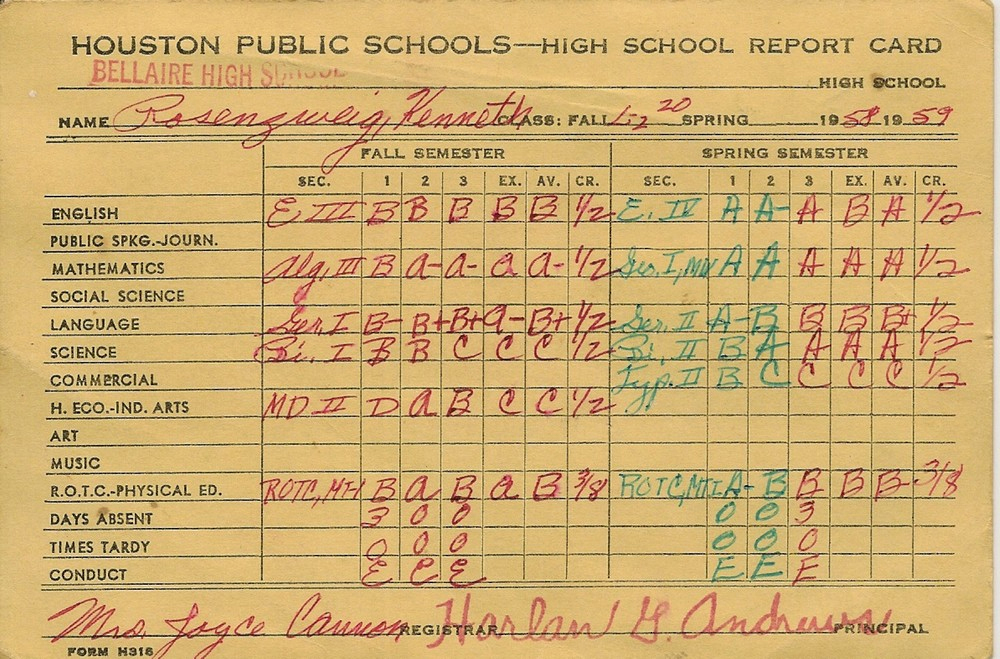 HOUSTON PUBLIC SCHOOLS—HIGH SCHOOL REPORT CARD
BELLAIRE HIGH SCHOOL
HIGH SCHOOL
NAME Rosenzweig, Kenneth CLASS: FALL L-2 20 SPRING 19 58 19 59
FALL SEMESTER SPRING SEMESTER
SEC. 1 2 3 EX. AV. CR. SEC. 1 2 3 EX. AV. CR.
ENGLISH E III B B B B B 1/2 E. IV A A- A B A 1/2
PUBLIC SPKG.-JOURN.
MATHEMATICS Alg. III B a- a- a a- 1/2 A A A A A 1/2
SOCIAL SCIENCE
LANGUAGE Ger. I B- B+ B+ a- B+ 1/2 Ger. II A- B B B B+ 1/2
SCIENCE Bi. I B B C C C 1/2 Bi. II B A A A A 1/2
COMMERCIAL Typ. II B C C C C 1/2
H. ECO.-IND. ARTS MD II D a B C C 1/2
ART
MUSIC
R.O.T.C.-PHYSICAL ED. ROTC, MT-I B a B a B 3/8 ROTC, MTI A- B B B B- 3/8
DAYS ABSENT 3 0 0 0 0 3
TIMES TARDY 0 0 0 0 0 0
CONDUCT E E E E E E
Mrs. Joyce Cannon REGISTRAR Harlan G. Andrews PRINCIPAL
FORM H316